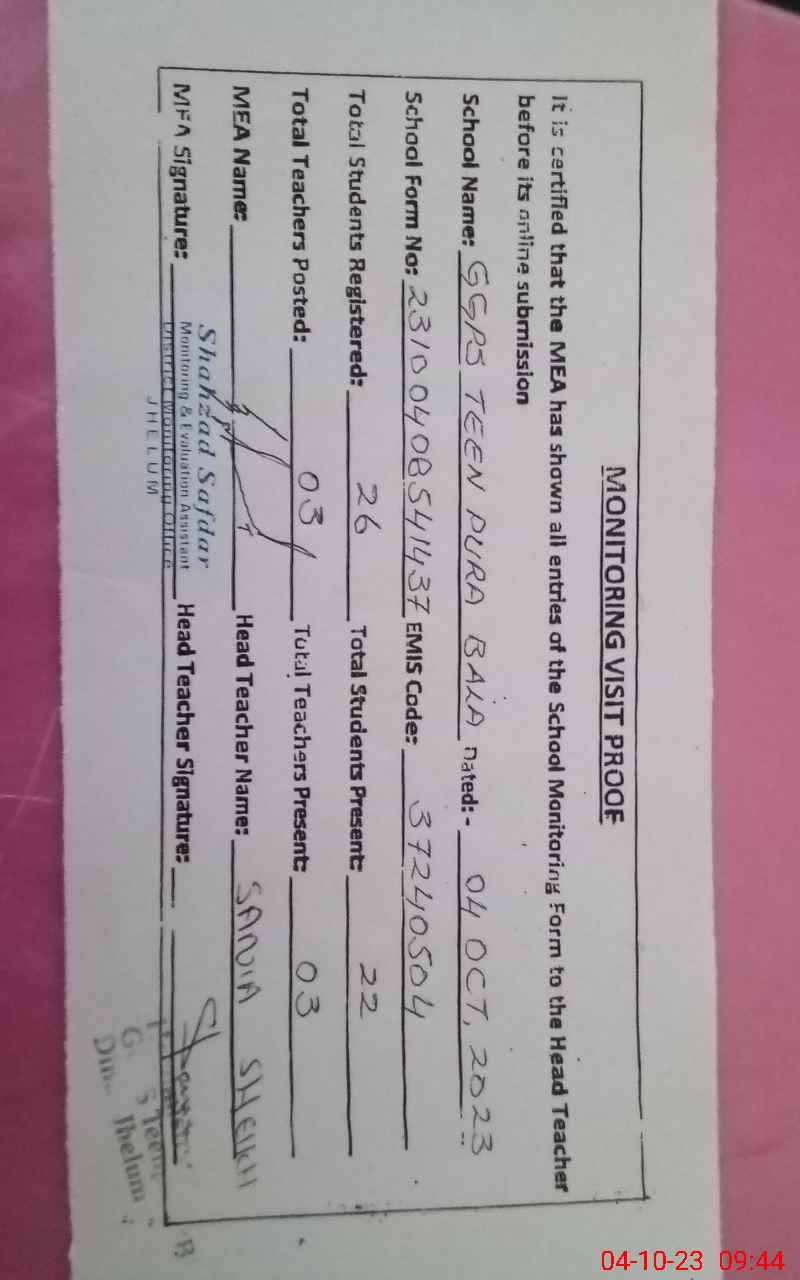 MONITORING VISIT PROOF
It is certified that the MEA has shown all entries of the School Monitoring Form to the Head Teacher
before its online submission
School Name: GGPS TEEN PURA BALA Dated:- 04 OCT, 2023
School Form No: 231004085541437 EMIS Code: 37240504
Total Students Registered: 26 Total Students Present: 22
Total Teachers Posted: 03 Total Teachers Present: 03
MEA Name: Head Teacher Name: SANIA SHEIKH
MEA Signature: Head Teacher Signature:
Shahzad Safdar
Monitoring & Evaluation Assistant
District Monitoring Office
JHELUM
Teen
Jhelum
04-10-23 09:44